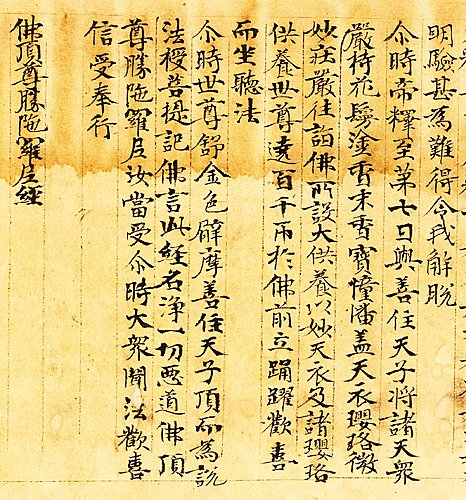 明驗甚為難得令我解脫
尒時帝釋至第七日與善住天子將諸天衆
嚴持花鬘塗香末香寶幢幡盖天衣瓔珞微
妙莊嚴往詣佛所設大供養以妙天衣及諸瓔珞
供養世尊遶百千帀於佛前立踊躍歡喜
而坐聽法
尒時世尊舒金色臂摩善住天子頂而為說
法授菩提記佛言此經名淨一切惡道佛頂
尊勝陁羅尼汝當受尒時大衆聞法歡喜
信受奉行
佛頂尊勝陁羅尼經